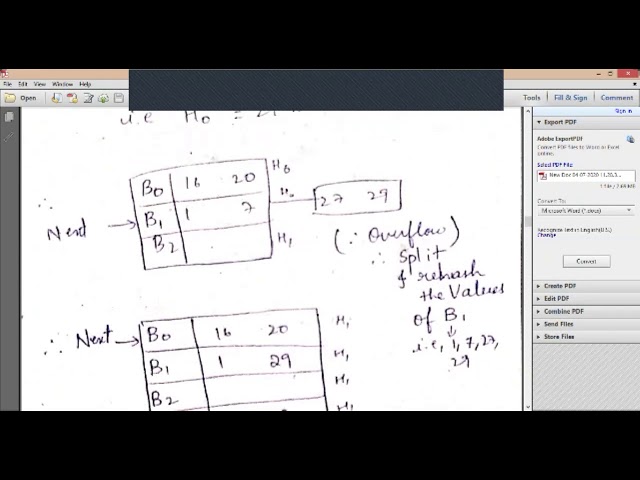 File Edit View Window Help
Open
Tools Fill & Sign Comment
Sign In
i.e H₀ =
B₀ 16 20 H₀
Next → B₁ 1 7 H₀ 27 29
B₂ H₁
(∵ Overflow)
∴ Split
& rehash
the values
of B₁
i.e, 1, 7, 27,
29
∴ Next → B₀ 16 20 H₁
B₁ 1 29 H₁
B₂ H₁
H₁
Export PDF
Adobe ExportPDF
Convert PDF files to Word or Excel
online.
Select PDF File:
New Doc 04-07-2020 11.20.3...
1 file / 2.69 MB
Convert To:
Microsoft Word (*.docx)
Recognize Text in English(U.S.)
Change
Convert
Create PDF
Edit PDF
Combine PDF
Send Files
Store Files